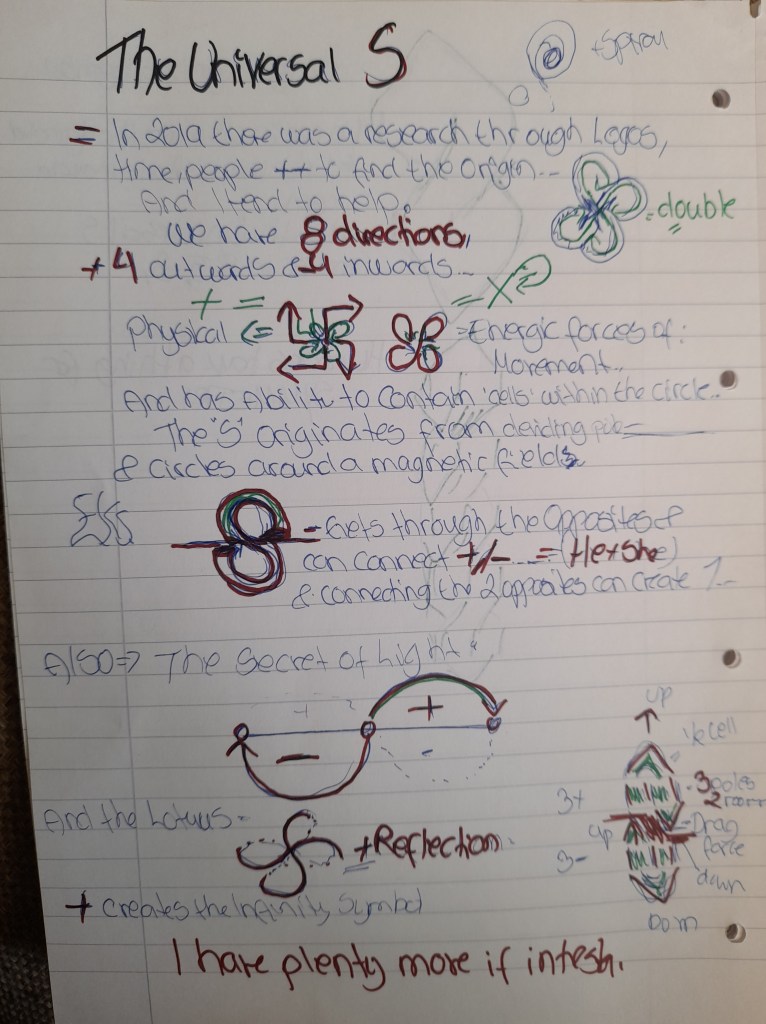 The Universal S
+ Spiral
= In 2019 there was a research through Logos,
time, people ++ tc And the Origin...
And I tend to help.
= double
We have 8 directions,
+ 4 outwards & 4 inwards...
+ =
= X
Physical <= = Energic forces of:
Movement..
And has Ability to contain 'cells' within the circle..
The 'S' originates from
& circles around a magnetic fields
- Gets through the Opposites &
can connect +/- = (He+she)
& connecting the 2 opposites can create 1...
Also => The Secret of Light
+
-
-
up
cell
3 poles
2
3+
up
Drag
force
3-
down
And the Lotuus-
+ Reflection.
+ creates the Infinity Symbol
I have plenty more if